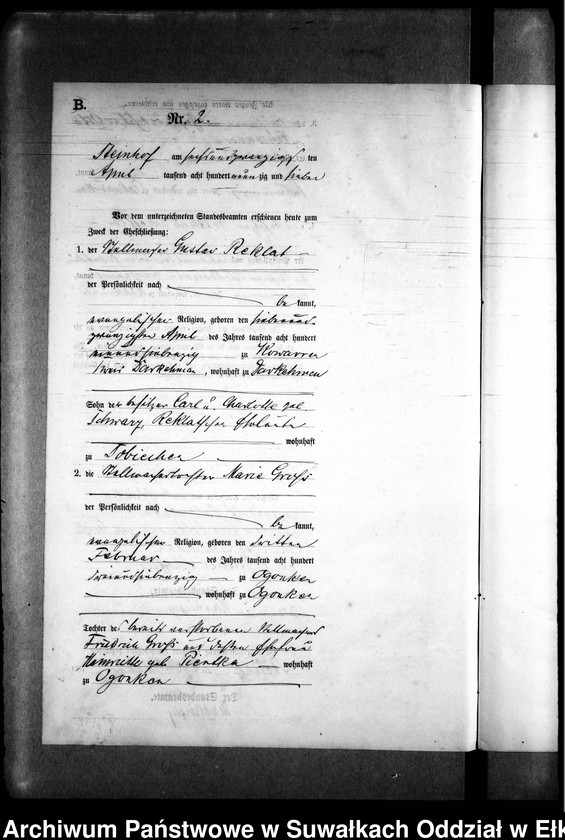 B.
Nr. 2.
Steinhof am sechsundzwanzigs ten
April tausend acht hundert neun zig und sieben
Vor dem unterzeichneten Standesbeamten erschienen heute zum
Zweck der Eheschließung:
1. der Stellmacher Gustav Reklat
der Persönlichkeit nach
be kannt,
evangelischer Religion, geboren den siebenund-
zwanzigsten April des Jahres tausend acht hundert
einundsiebenzig zu Kowarren
Kreis Darkehmen, wohnhaft zu Darkehmen
Sohn der Besitzer Carl u. Charlotte geb.
Schwarz Reklatschen Eheleute
wohnhaft
zu
2. die Stellmachertochter Marie Groß
der Persönlichkeit nach
be kannt,
evangelischer Religion, geboren den dritten
Februar des Jahres tausend acht hundert
dreiundsiebenzig zu Ogonken
wohnhaft zu Ogonken
Tochter des bereits verstorbenen Stellmachers
Friedrich Groß und dessen Ehefrau
Heinriette geb. Pientka wohnhaft
zu Ogonken
Der Standesbeamte.
Archiwum Państwowe w Suwałkach Oddział w Ełk